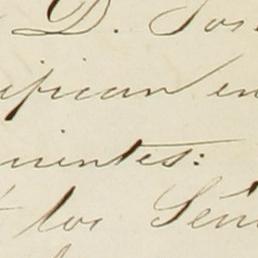 D. Jos
ifican en
uientes:
los Señ